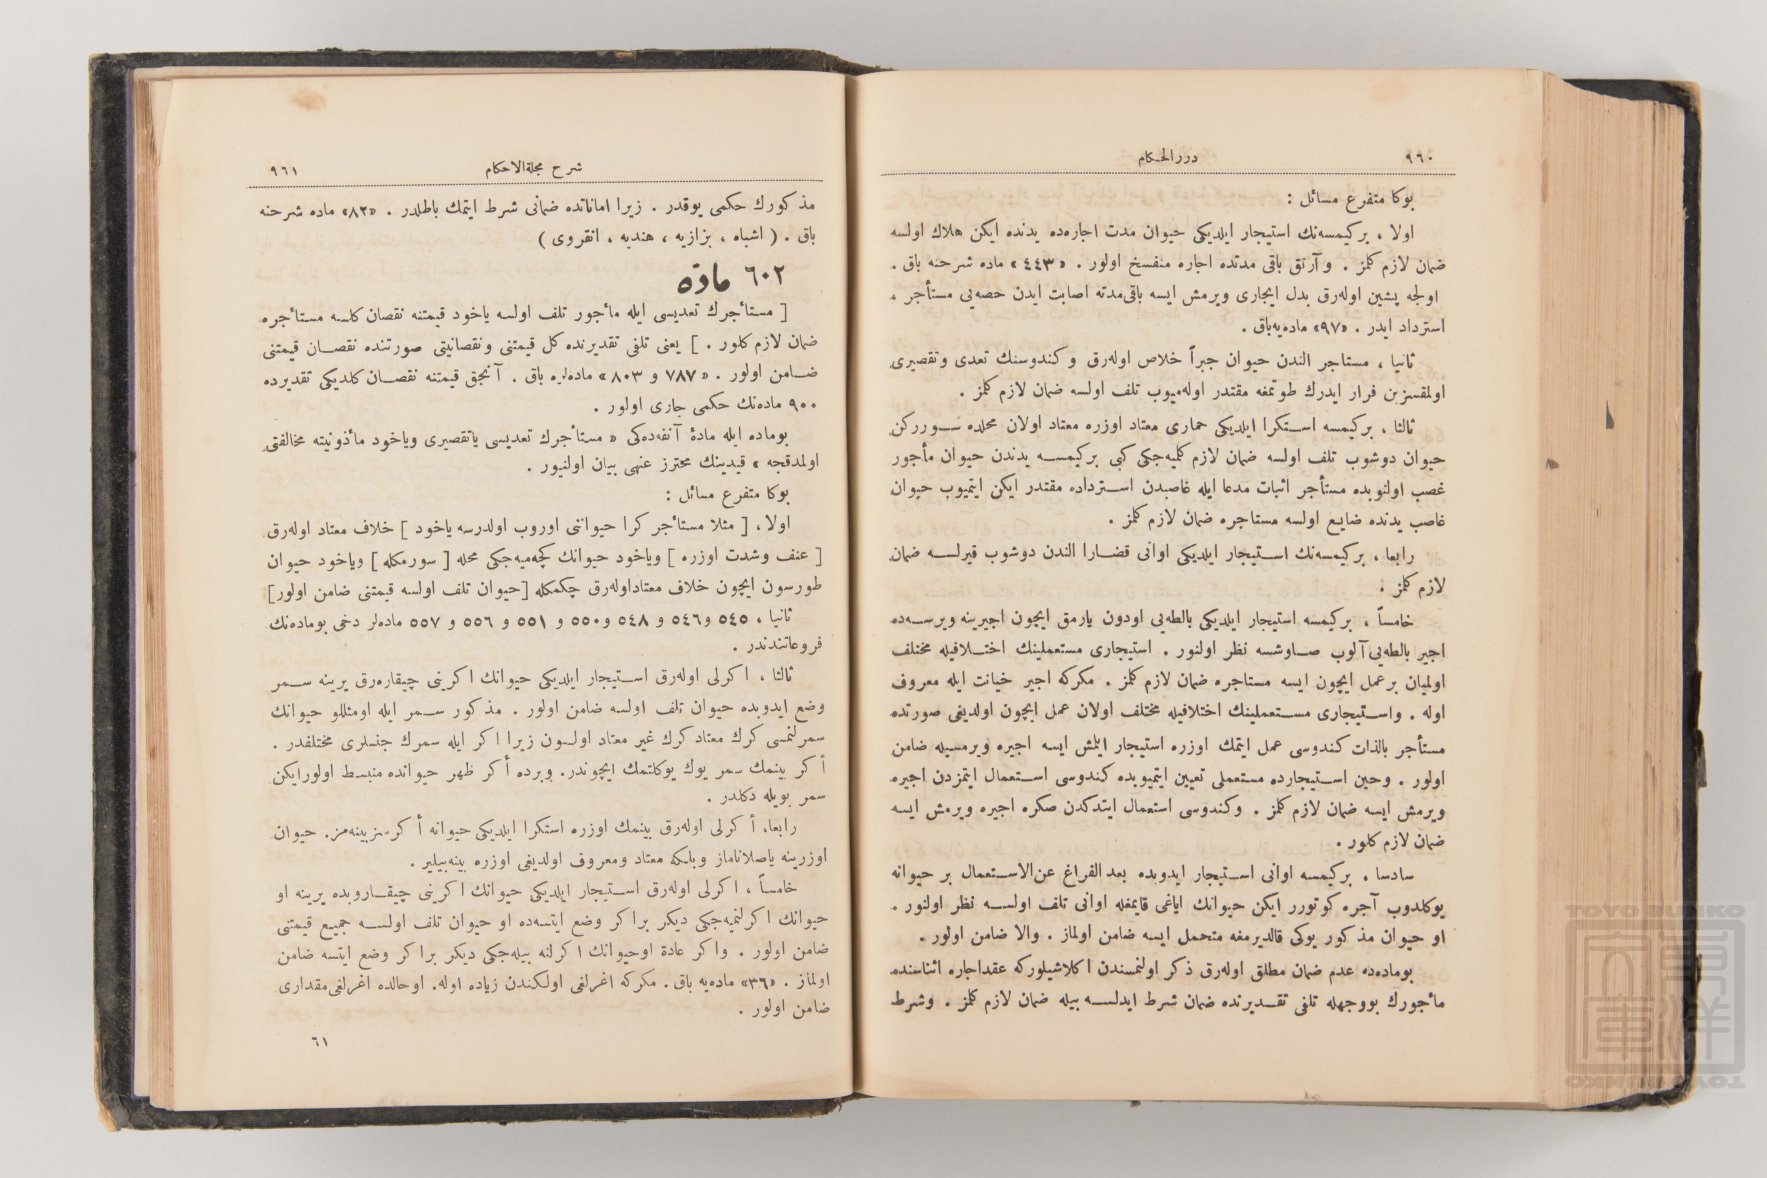 ٩٦٠
دررالحكام
بوكا متفرع مسائل :
اولا ، بركيمسه‌نك استيجار ايلديكى حيوان مدت اجاره‌ده يدنده ايكن هلاك اولسه
ضمان لازم كلمز . و آرتق باقى مدتده اجاره منفسخ اولور . «٤٤٣» ماده شرحنه باق .
اولجه پشين اوله‌رق بدل ايجارى ويرمش ايسه باقى مدته اصابت ايدن حصه‌يى مستأجر ،
استرداد ايدر . «٩٧» ماده‌يه باق .
ثانيا ، مستاجر الندن حيوان جبراً خلاص اوله‌رق و كندوسنك تعدى و تقصيرى
اولمقسزين فرار ايدرك طوتمغه مقتدر اوله‌ميوب تلف اولسه ضمان لازم كلمز .
ثالثا ، بركيمسه استكرا ايلديكى حمارى معتاد اوزره معتاد اولان محلده سوررکن
حيوان دوشوب تلف اولسه ضمان لازم كلميه‌جكى كبى بركيمسه يدندن حيوان مأجور
غصب اولنوبده مستأجر اثبات مدعا ايله غاصبدن استرداده مقتدر ايكن ايتميوب حيوان
غاصب يدنده ضايع اولسه مستاجره ضمان لازم كلمز .
رابعا ، بركيمسه‌نك استيجار ايلديكى اوانى قضارا الندن دوشوب قيرلسه ضمان
لازم كلمز .
خامساً ، بركيمسه استيجار ايلديكى بالطه‌يى اودون يارمق ايچون اجيرينه ويرسه‌ده
اجير بالطه‌يى آلوب صاوشسه نظر اولنور . استيجارى مستعملينك اختلافيله مختلف
اولميان برعمل ايچون ايسه مستاجره ضمان لازم كلمز . مكركه اجير خيانت ايله معروف
اوله . واستيجارى مستعملينك اختلافيله مختلف اولان عمل ايچون اولديغى صورتده
مستأجر بالذات كندوسى عمل ايتمك اوزره استيجار ايلمش ايسه اجيره ويرمسيله ضامن
اولور . وحين استيجارده مستعملى تعيين ايتميوبده كندوسى استعمال ايتمزدن اجيره
ويرمش ايسه ضمان لازم كلمز . وكندوسى استعمال ايتدكدن صكره اجيره ويرمش ايسه
ضمان لازم كلور .
سادسا ، بركيمسه اوانى استيجار ايدوبده بعد الفراغ عن‌الاستعمال بر حيوانه
يوكلدوب آجره كوتورر ايكن حيوانك اياغى قايمغله اوانى تلف اولسه نظر اولنور .
او حيوان مذكور يوكى قالديرمغه متحمل ايسه ضامن اولماز . والا ضامن اولور .
بوماده‌ده عدم ضمان مطلق اوله‌رق ذكر اولنمسندن اكلاشيلوركه عقداجاره اثناسنده
مأجورك بووجهله تلفى تقديرنده ضمان شرط ايدلسه بيله ضمان لازم كلمز . وشرط
٩٦١
شرح مجلةالاحكام
مذكورك حكمى يوقدر . زيرا اماناتده ضمانى شرط ايتمك باطلدر . «٨٣» ماده شرحنه
باق . ( اشباه ، بزازيه ، هنديه ، انقروى )
٦٠٢ مادّه
[ مستأجرك تعديسى ايله مأجور تلف اولسه ياخود قيمتنه نقصان كلسه مستأجره
ضمان لازم كلور . ] يعنى تلفى تقديرنده كل قيمتنى و نقصانيتى صورتنده نقصان قيمتنى
ضامن اولور . «٧٨٧ و ٨٠٣» ماده‌لره باق . آنجق قيمتنه نقصان كلديكى تقديرده
٩٠٠ ماده‌نك حكمى جارى اولور .
بوماده ايله مادهٔ آنفه‌ده‌كى « مستأجرك تعديسى ياتقصيرى وياخود مأذونيته مخالفتى
اولمدقجه » قيدينك محترز عنهى بيان اولنيور .
بوكا متفرع مسائل :
اولا ، [ مثلا مستأجر كرا حيواننى اوروب اولدرسه ياخود ] خلاف معتاد اوله‌رق
[ عنف وشدت اوزره ] وياخود حيوانك كچه‌ميه‌جكى محله [ سورمكله ] وياخود حيوان
طورسون ايچون خلاف معتاداوله‌رق چكمكله [حيوان تلف اولسه قيمتنى ضامن اولور]
ثانيا ، ٥٤٥ و٥٤٦ و ٥٤٨ و٥٥٠ و ٥٥١ و ٥٥٦ و ٥٥٧ ماده‌لر دخى بوماده‌نك
فروعاتندندر .
ثالثا ، اكرلى اوله‌رق استيجار ايلديكى حيوانك اكرينى چيقاره‌رق يرينه سمر
وضع ايدوبده حيوان تلف اولسه ضامن اولور . مذكور سمر ايله اومثللو حيوانك
سمرلنمسى كرك معتاد كرك غير معتاد اولسون زيرا اكر ايله سمرك جنسلرى مختلفدر .
أكر بينمك سمر يوك يوكلتمك ايچوندر. وبرده أكر ظهر حيوانده منبسط اولورايكن
سمر بويله دكلدر .
رابعا، أكرلى اوله‌رق بينمك اوزره استكرا ايلديكى حيوانه أكرسز بينه‌مز. حيوان
اوزرينه ياصلانماز وبلكه معتاد ومعروف اولديغى اوزره بينه‌بيلير .
خامساً ، اكرلى اوله‌رق استيجار ايلديكى حيوانك اكرينى چيقاروبده يرينه او
حيوانك اكرلنميه‌جكى ديكر براكر وضع ايتسه‌ده او حيوان تلف اولسه جميع قيمتنى
ضامن اولور . واكر عادة اوحيوانك اكرلنه بيله‌جكى ديكر براكر وضع ايتسه ضامن
اولماز . «٣٦» ماده‌يه باق . مكركه اغرلغى اولكندن زياده اوله. اوحالده اغرلغى مقدارى
ضامن اولور .
٦١
TOYO BUNKO
東洋文庫
TOYO BUNKO